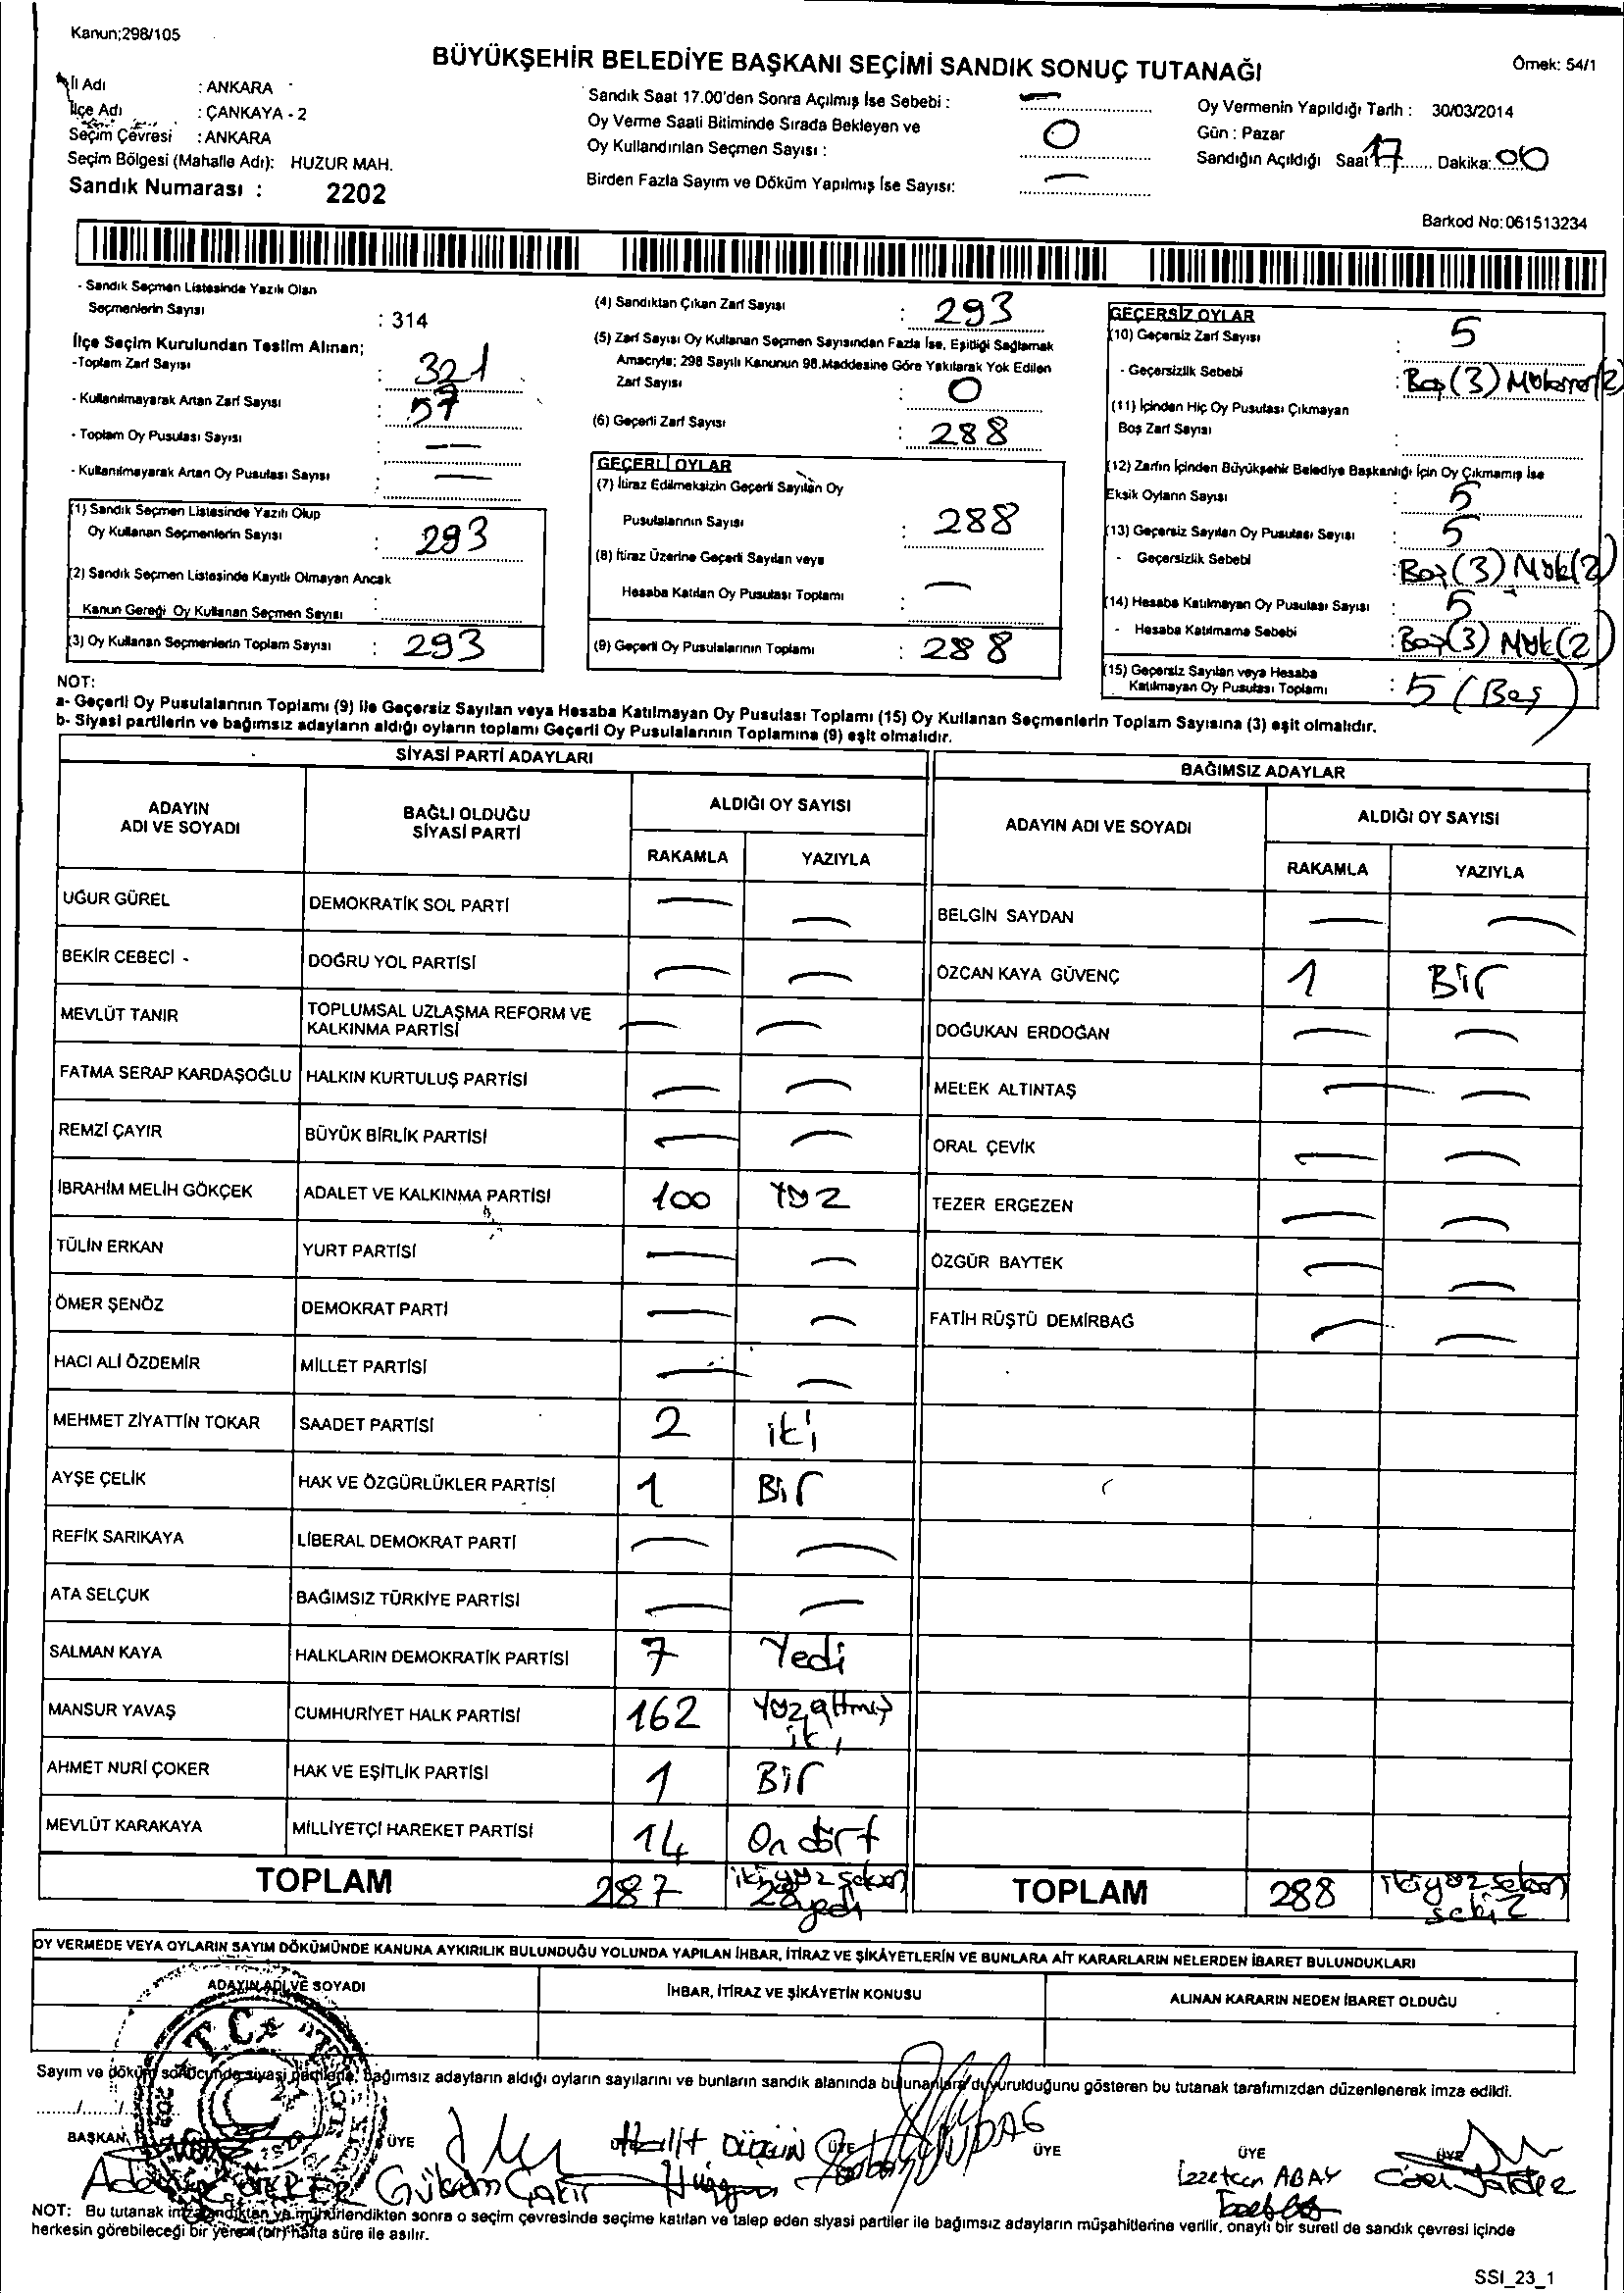 Kanun;298/105
BÜYÜKŞEHİR BELEDİYE BAŞKANI SEÇİMİ SANDIK SONUÇ TUTANAĞI
Örnek: 54/1
İl Adı : ANKARA
İlçe Adı : ÇANKAYA - 2
Seçim Çevresi : ANKARA
Seçim Bölgesi (Mahalle Adı): HUZUR MAH.
Sandık Numarası : 2202
Sandık Saat 17.00'den Sonra Açılmış İse Sebebi : —
Oy Verme Saati Bitiminde Sırada Bekleyen ve
Oy Kullandırılan Seçmen Sayısı : 0
Birden Fazla Sayım ve Döküm Yapılmış İse Sayısı: —
Oy Vermenin Yapıldığı Tarih : 30/03/2014
Gün : Pazar
Sandığın Açıldığı Saat 17 Dakika: 00
Barkod No:061513234
- Sandık Seçmen Listesinde Yazılı Olan
Seçmenlerin Sayısı : 314
İlçe Seçim Kurulundan Teslim Alınan;
-Toplam Zarf Sayısı : 321
- Kullanılmayarak Artan Zarf Sayısı :
- Toplam Oy Pusulası Sayısı : —
- Kullanılmayarak Artan Oy Pusulası Sayısı : —
(1) Sandık Seçmen Listesinde Yazılı Olup
Oy Kullanan Seçmenlerin Sayısı : 293
(2) Sandık Seçmen Listesinde Kayıtlı Olmayan Ancak
Kanun Gereği Oy Kullanan Seçmen Sayısı :
(3) Oy Kullanan Seçmenlerin Toplam Sayısı : 293
(4) Sandıktan Çıkan Zarf Sayısı : 293
(5) Zarf Sayısı Oy Kullanan Seçmen Sayısından Fazla İse, Eşitliği Sağlamak
Amacıyla; 298 Sayılı Kanunun 98.Maddesine Göre Yakılarak Yok Edilen
Zarf Sayısı : 0
(6) Geçerli Zarf Sayısı : 288
GEÇERLİ OYLAR
(7) İtiraz Edilmeksizin Geçerli Sayılan Oy
Pusulalarının Sayısı : 288
(8) İtiraz Üzerine Geçerli Sayılan veya
Hesaba Katılan Oy Pusulası Toplamı : —
(9) Geçerli Oy Pusulalarının Toplamı : 288
GEÇERSİZ OYLAR
(10) Geçersiz Zarf Sayısı : 5
- Geçersizlik Sebebi : Boş(3) Mükerrer(2)
(11) İçinden Hiç Oy Pusulası Çıkmayan
Boş Zarf Sayısı :
(12) Zarfın İçinden Büyükşehir Belediye Başkanlığı İçin Oy Çıkmamış İse
Eksik Oyların Sayısı : 5
(13) Geçersiz Sayılan Oy Pusulası Sayısı : 5
- Geçersizlik Sebebi : Boş(3) Mük(2)
(14) Hesaba Katılmayan Oy Pusulası Sayısı : 5
- Hesaba Katılmama Sebebi : Boş(3) Mük(2)
(15) Geçersiz Sayılan veya Hesaba
Katılmayan Oy Pusulası Toplamı : 5 (Boş)
NOT:
a- Geçerli Oy Pusulalarının Toplamı (9) ile Geçersiz Sayılan veya Hesaba Katılmayan Oy Pusulası Toplamı (15) Oy Kullanan Seçmenlerin Toplam Sayısına (3) eşit olmalıdır.
b- Siyasi partilerin ve bağımsız adayların aldığı oyların toplamı Geçerli Oy Pusulalarının Toplamına (9) eşit olmalıdır.
SİYASİ PARTİ ADAYLARI
BAĞIMSIZ ADAYLAR
ADAYIN ADI VE SOYADI
BAĞLI OLDUĞU SİYASİ PARTİ
ALDIĞI OY SAYISI
RAKAMLA YAZIYLA
ADAYIN ADI VE SOYADI
ALDIĞI OY SAYISI
RAKAMLA YAZIYLA
UĞUR GÜREL DEMOKRATİK SOL PARTİ — — BELGİN SAYDAN — —
BEKİR CEBECİ - DOĞRU YOL PARTİSİ — — ÖZCAN KAYA GÜVENÇ 1 Bir
MEVLÜT TANIR TOPLUMSAL UZLAŞMA REFORM VE KALKINMA PARTİSİ — — DOĞUKAN ERDOĞAN — —
FATMA SERAP KARDAŞOĞLU HALKIN KURTULUŞ PARTİSİ — — MELEK ALTINTAŞ — —
REMZİ ÇAYIR BÜYÜK BİRLİK PARTİSİ — — ORAL ÇEVİK — —
İBRAHİM MELİH GÖKÇEK ADALET VE KALKINMA PARTİSİ 100 Yüz TEZER ERGEZEN — —
TÜLİN ERKAN YURT PARTİSİ — — ÖZGÜR BAYTEK — —
ÖMER ŞENÖZ DEMOKRAT PARTİ — — FATİH RÜŞTÜ DEMİRBAĞ — —
HACI ALİ ÖZDEMİR MİLLET PARTİSİ — —
MEHMET ZİYATTİN TOKAR SAADET PARTİSİ 2 iki
AYŞE ÇELİK HAK VE ÖZGÜRLÜKLER PARTİSİ 1 Bir
REFİK SARIKAYA LİBERAL DEMOKRAT PARTİ — —
ATA SELÇUK BAĞIMSIZ TÜRKİYE PARTİSİ — —
SALMAN KAYA HALKLARIN DEMOKRATİK PARTİSİ 7 Yedi
MANSUR YAVAŞ CUMHURİYET HALK PARTİSİ 162 Yüzaltmış iki
AHMET NURİ ÇOKER HAK VE EŞİTLİK PARTİSİ 1 Bir
MEVLÜT KARAKAYA MİLLİYETÇİ HAREKET PARTİSİ 14 On dört
TOPLAM 287 ikiyüz seksen yedi TOPLAM 288 ikiyüz seksen sekiz
OY VERMEDE VEYA OYLARIN SAYIM DÖKÜMÜNDE KANUNA AYKIRILIK BULUNDUĞU YOLUNDA YAPILAN İHBAR, İTİRAZ VE ŞİKÂYETLERİN VE BUNLARA AİT KARARLARIN NELERDEN İBARET BULUNDUKLARI
ADAYIN ADI VE SOYADI İHBAR, İTİRAZ VE ŞİKÂYETİN KONUSU ALINAN KARARIN NEDEN İBARET OLDUĞU
T.C.
Sayım ve döküm sonucunda siyasi partilerle, bağımsız adayların aldığı oyların sayılarını ve bunların sandık alanında bulunanlara duyurulduğunu gösteren bu tutanak tarafımızdan düzenlenerek imza edildi.
....../....../
BAŞKAN ÜYE ÜYE ÜYE ÜYE ÜYE
Gülsüm Çakır Halit Düzgün İzzetcan ABAY
NOT: Bu tutanak imzalandıktan ve mühürlendikten sonra o seçim çevresinde seçime katılan ve talep eden siyasi partiler ile bağımsız adayların müşahitlerine verilir, onaylı bir sureti de sandık çevresi içinde
herkesin görebileceği bir yere (bir) hafta süre ile asılır.
SSI_23_1